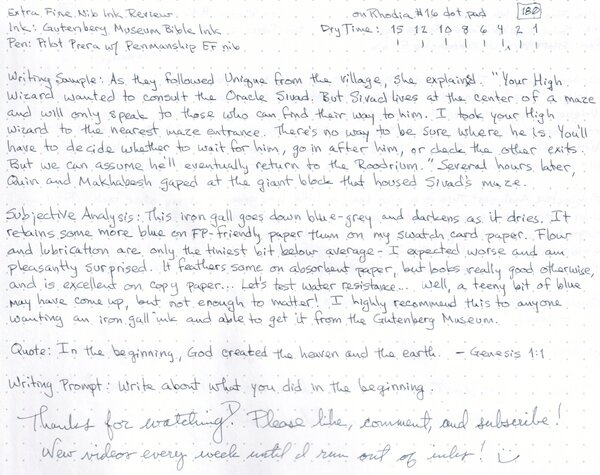 Extra Fine Nib Ink Review on Rhodia #16 dot pad 180
Ink: Gutenberg Museum Bible Ink Dry Time: 15 12 10 8 6 4 2 1
Pen: Pilot Prera w/ Penmanship EF nib
Writing Sample: As they followed Unique from the village, she explained. "Your High
Wizard wanted to consult the Oracle Sivad. But Sivad lives at the center of a maze
and will only speak to those who can find their way to him. I took your High
Wizard to the nearest maze entrance. There's no way to be sure where he is. You'll
have to decide whether to wait for him, go in after him, or check the other exits.
But we can assume he'll eventually return to the Roodrium." Several hours later,
Quin and Makhabesh gaped at the giant block that housed Sivad's maze.
Subjective Analysis: This iron gall goes down blue-grey and darkens as it dries. It
retains some more blue on FP-friendly paper than on my swatch card paper. Flow
and lubrication are only the tiniest bit below average - I expected worse and am
pleasantly surprised. It feathers some on absorbent paper, but looks really good otherwise,
and is excellent on copy paper... Let's test water resistance... Well, a teeny bit of blue
may have come up, but not enough to matter! I highly recommend this to anyone
wanting an iron gall ink and able to get it from the Gutenberg Museum.
Quote: In the beginning, God created the heaven and the earth. - Genesis 1:1
Writing Prompt: Write about what you did in the beginning.
Thanks for watching! Please like, comment, and subscribe!
New videos every week until I run out of inks!